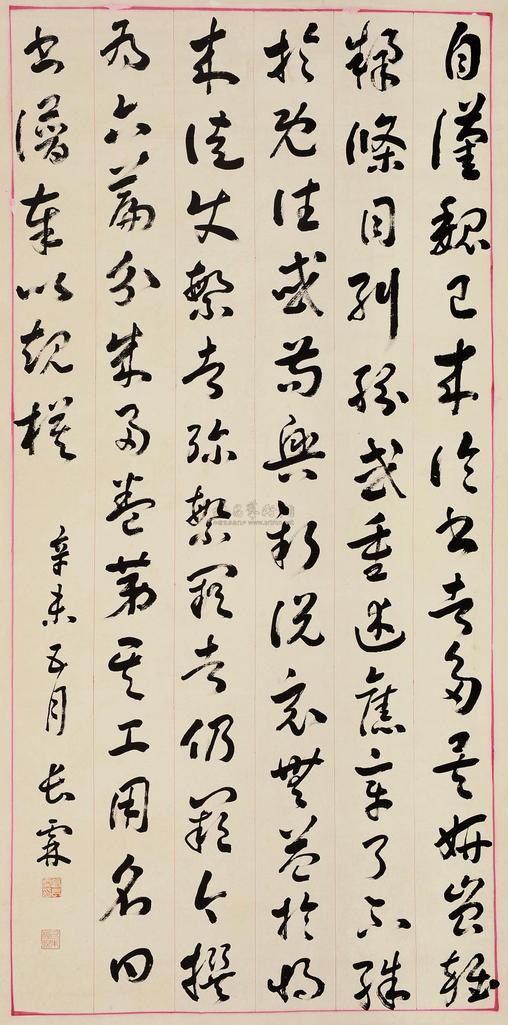 自漢魏已來論書者多矣妍蚩雜
糅條目糾紛或重述舊章了不殊
於既往或苟興新說竟無益於將
來徒使繁者彌繁闕者仍闕今撰
為六篇分成兩卷第其工用名曰
書譜奉以規模
辛未五月 長霖